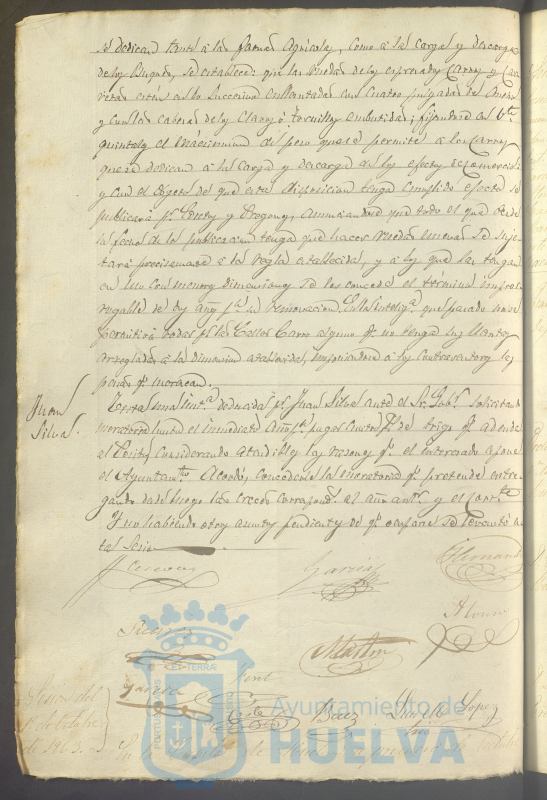 se dedican tanto á las faenas Agricolas, como á las cargas y descargas
de los Buques, se establece: que las ruedas de los espresados Carros y Car
retas esten en lo succesivo enllantadas con cuatro pulgadas de ancho
y con las cabezas de los Clavos ó tornillos embutidas; fijandose en
quintales el maximum del peso que se permite á los Carros
que se dedican á la carga y descarga de los efectos del comercio:
y con el objeto de que esta disposicion tenga cumplido efecto se
publicará pr. Edictos y Pregones, anunciandose que todo el que desde
la fecha de la publicacion tenga que hacer ruedas nuevas se suje
tará precisamente á la regla establecida, y á los que las tengan
en uso con menores dimensiones se les concede el término impror
rogable de años pa. su renovacion. En la inteliga. que pasado no se
permitirá rodar pr. las Calles Carro alguno qe. no tenga sus llantas
arregladas á la dimension establecida, imponiendose á los contraventores las
penas qe. merezcan.
Juan
Silva.
Leida una insta. deducida pr. Juan Silva ante el Sr. Gobr. solicitando
moratoria hasta el inmediato Año pa. pagar cuatro fs. de trigo qe. adeuda
al Posito, considerando atendibles las razones qe. el interesado espone
el Ayuntamto. Acordó, concederle la moratoria qe. pretende entre
gando desde luego las creces correspond. al año antr. y el corrte.
Y no habiendo otros asuntos pendientes de qe. ocuparse se levantó es
ta Sesion
Garcia
Hernand
Alonso
Martin
Garcia
Baez
Lopez
Sesion del
1º de Octubre
de 1863.
En la de Octubre
PORTUS MARIS
ET TERRÆ
Ayuntamiento de
HUELVA